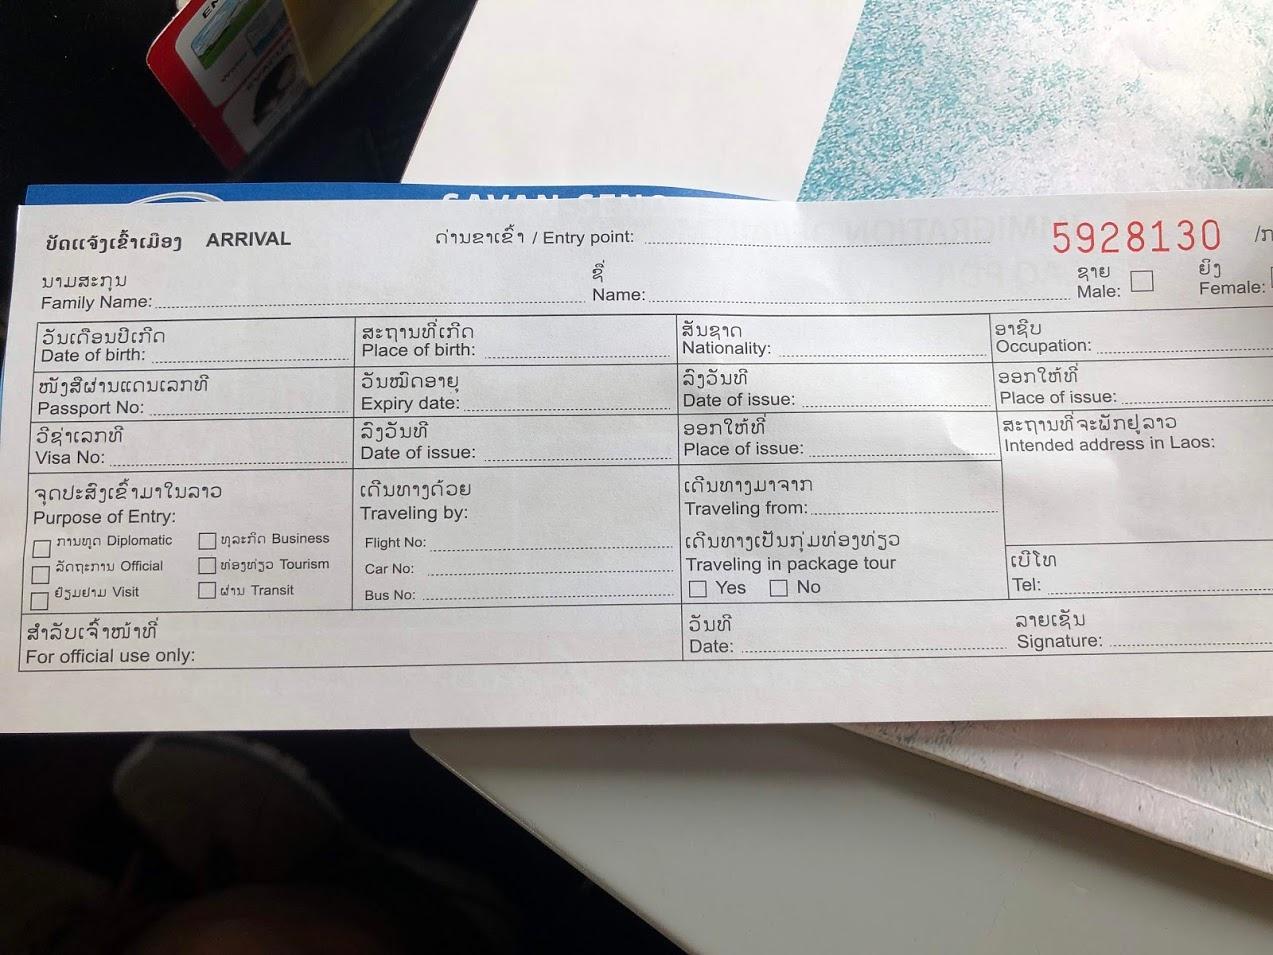 SAVAN SENG
ບັດແຈ້ງເຂົ້າເມືອງ ARRIVAL ດ່ານຂາເຂົ້າ / Entry point: 5928130 /ກ
ນາມສະກຸນ ຊື່ ຊາຍ ຍິງ
Family Name: Name: Male: Female:
ວັນເດືອນປີເກີດ ສະຖານທີ່ເກີດ ສັນຊາດ ອາຊີບ
Date of birth: Place of birth: Nationality: Occupation:
ໜັງສືຜ່ານແດນເລກທີ ວັນໝົດອາຍຸ ລົງວັນທີ ອອກໃຫ້ທີ່
Passport No: Expiry date: Date of issue: Place of issue:
ວີຊ່າເລກທີ ລົງວັນທີ ອອກໃຫ້ທີ່ ສະຖານທີ່ຈະພັກຢູ່ລາວ
Visa No: Date of issue: Place of issue: Intended address in Laos:
ຈຸດປະສົງເຂົ້າມາໃນລາວ ເດີນທາງດ້ວຍ ເດີນທາງມາຈາກ
Purpose of Entry: Traveling by: Traveling from:
ການທູດ Diplomatic ທຸລະກິດ Business Flight No: ເດີນທາງເປັນກຸ່ມທ່ອງທ່ຽວ
ລັດຖະການ Official ທ່ອງທ່ຽວ Tourism Car No: Traveling in package tour ເບີໂທ
ຢ້ຽມຢາມ Visit ຜ່ານ Transit Bus No: Yes No Tel:
ສຳລັບເຈົ້າໜ້າທີ່ ວັນທີ ລາຍເຊັນ
For official use only: Date: Signature: